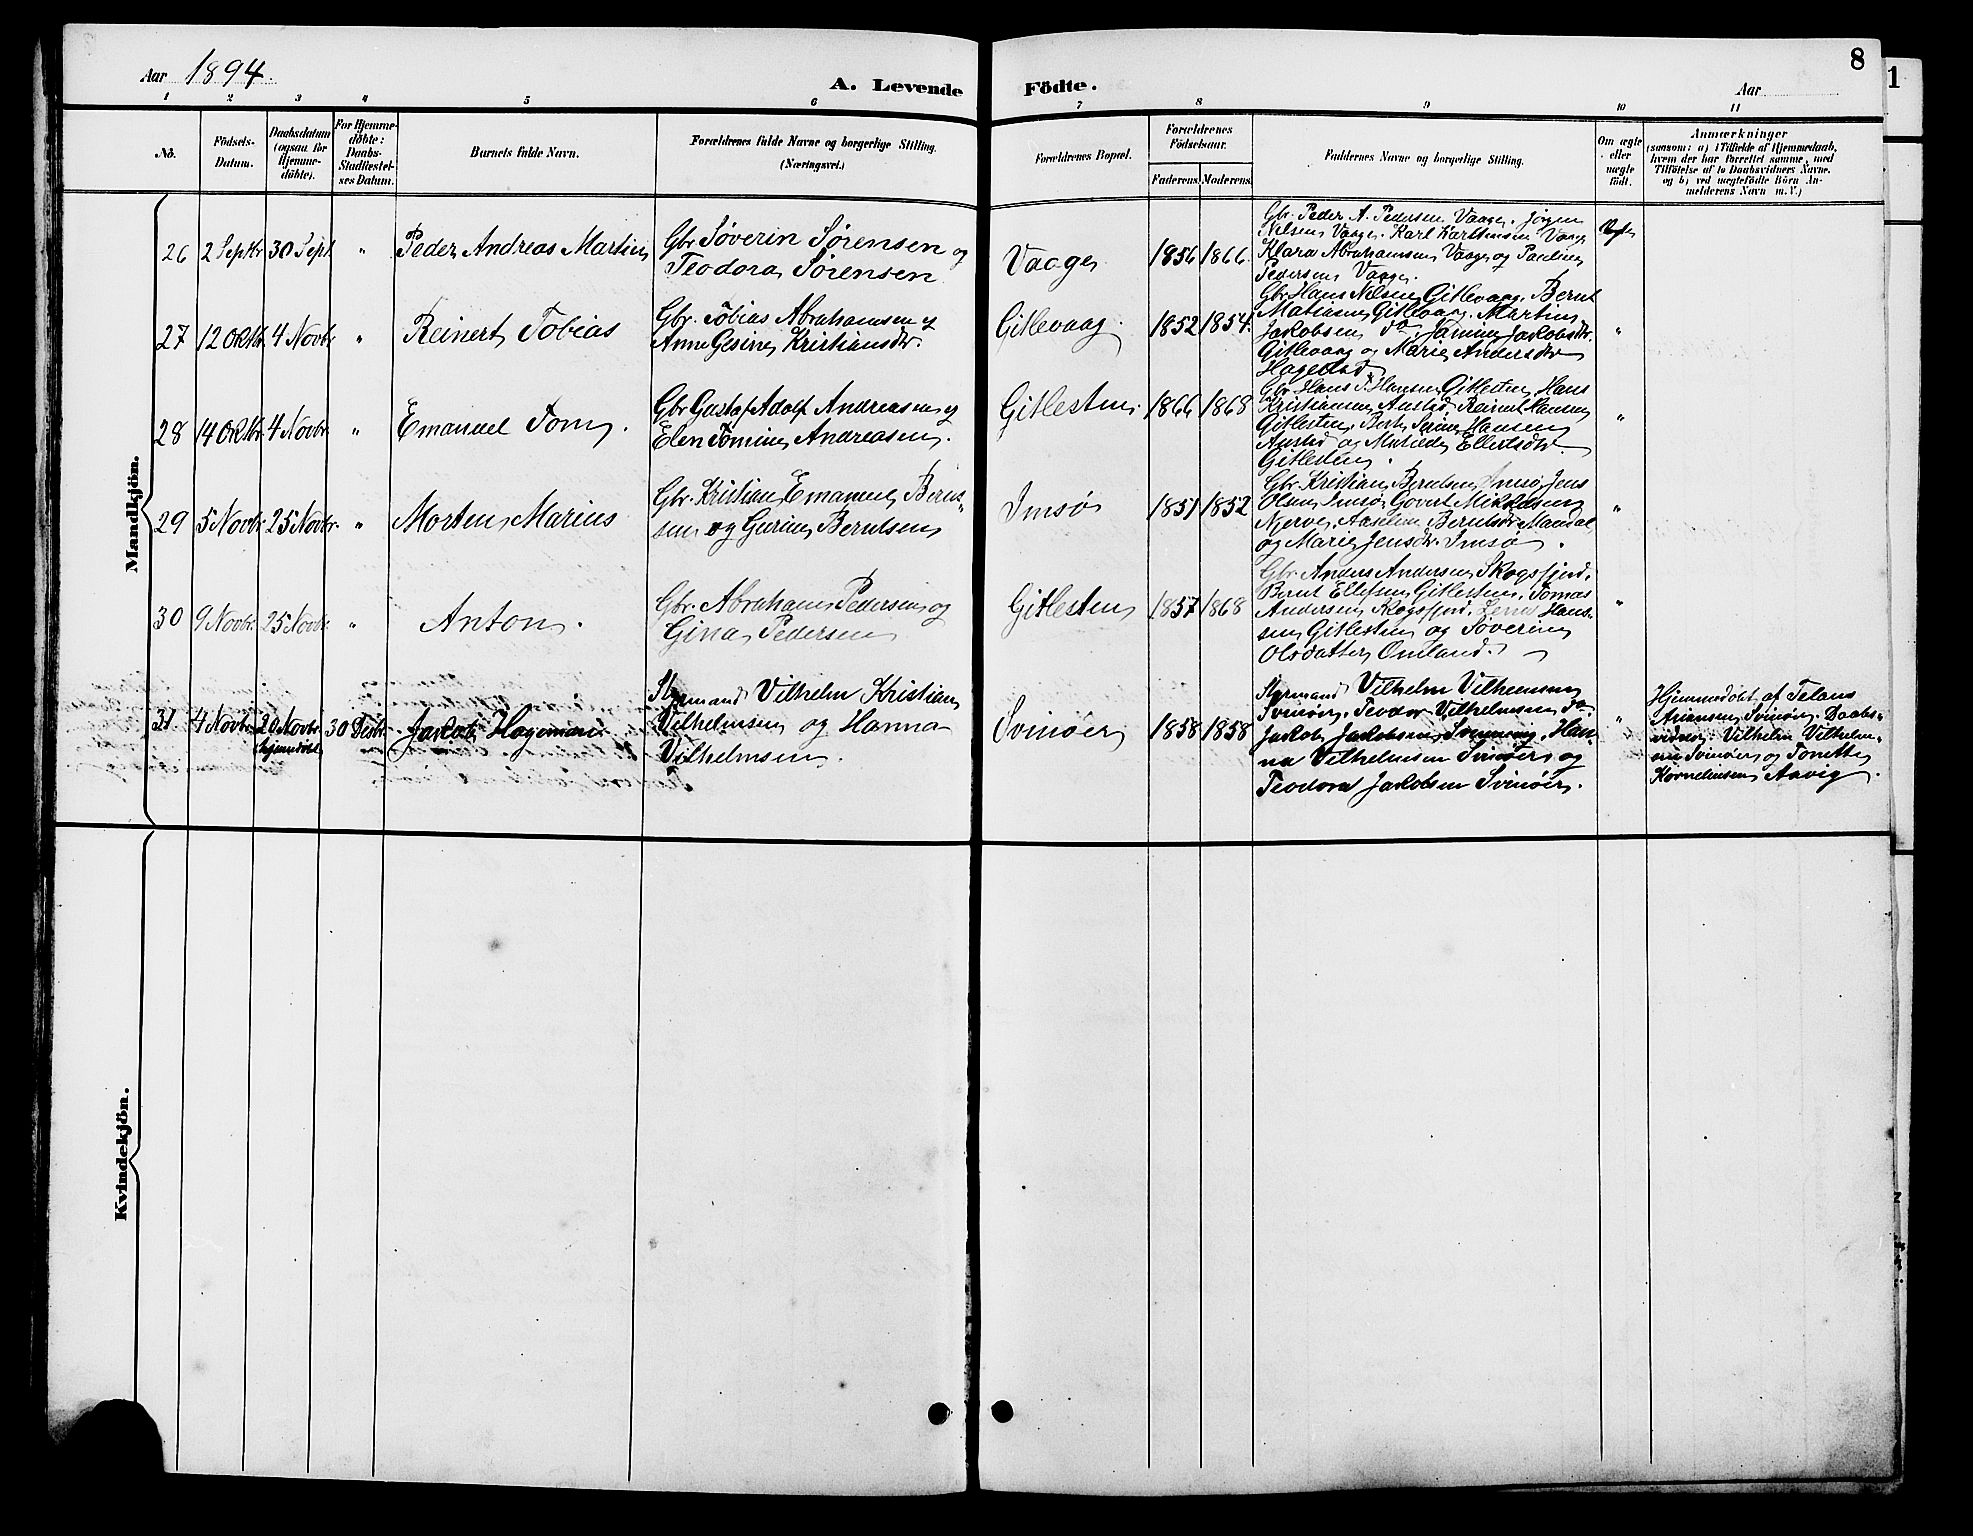 Aar 1894.
A. Levende Födte.
Aar
8
1
1 2 3 4 5 6 7 8 9 10 11
No.
Födsels-
Datum.
Daabsdatum
(ogsaa for
Hjemme-
döbte).
For Hjemme-
döbte:
Daabs-
Stadfæstel-
ses Datum.
Barnets fulde Navn.
Forældrenes fulde Navne og borgerlige Stilling.
(Næringsvei.)
Forældrenes Bopæl.
Forældrenes
Födselsaar.
Faderens. Moderens.
Faddernes Navne og borgerlige Stilling.
Om ægte
eller
uægte
födt.
Anmærkninger
(saasom: a) i Tilfælde af Hjemmedaab,
hvem der har forrettet samme, med
Tilföielse af to Daabsvidners Navne.
og b) ved uægtefödte Börn An-
melderens Navn m. V.)
Mandkjön.
26 2 Septbr 30 Sept " Peder Andreas Martin
Gbr Søverin Sørensen og
Teodora Sørensen
Vaage 1856 1866
Gbr. Peder A. Pedersen Vaage, Jørgen
Nilsen Vaage. Karl Karltensen Vaage
Klara Abrahamsen Vaage og Pauline
Pedersen Vaage.
Ægte
27 12 Oktbr 4 Novbr " Reinert Tobias
Gbr. Tobias Abrahamsen og
Anne Gesine Kristiansdtr.
Gitlevaag. 1852 1854.
Gbr Hans Nilsen Gitlevaag. Bernt
Matiasen Gitlevaag. Martin
Jakobsen do Jakobsdtr.
Gitlevaag og Marie Andersdtr
"
28 14 Oktbr 4 Novbr. " Emanuel Tom.
Gbr Gustaf Adolf Andreasen og
Elen Tomine Andreasen.
Gitlesten. 1866 1868
Gbr. Hans T. Hansen Gitlesten, Hans
Kristiansen Austad, Reinert Hansen
Gitlesten, Berte Serine Hansen
Austad og Matilde Ellertsdtr
Gitlesten.
"
29 5 Novbr. 25 Novbr. " Morten Marius
Gbr. Kristian Emanuel Bernt-
sen og Gurine Berntsen
Imsø 1851 1852
Gbr. Kristian Berntsen Imsø, Jens
Olsen Imsø, Govert Mikkelsen
Njerve, Aaseline Berntsdtr Mandal
og Marie Jensdtr. Imsø.
"
30 9 Novbr. 25 Novbr. " Anton.
Gbr. Abraham Pedersen og
Gina Pedersen
Gitlesten 1857 1868
Gbr. Anders Andersen Skogsfjord,
Bernt Ellefsen Gitlesten, Tomas
Andersen Skogsfjord, Hans-
sen Gitlesten og Søverine
Olsdatter Omland.
"
31 4 Novbr. 20 Novbr. 30 Desbr. Jakob Hageman
hjemdøbt
Styrmand Vilhelm Kristian
Vilhelmsen og Hanna
Vilhelmsen.
Svinøer 1858 1858
Styrmand Vilhelm Vilhelmsen
Svinøer, Teodor Vilhelmsen do
Jakob Jakobsen Han-
na Vilhelmsen Svinøer og
Teodora Jakobsen Svinøer.
"
Hjemmedøbt af
Svinøer, Daabs-
vidner: Vilhelm Vilhelm-
sen Svinøer og Tonette
Kornelinsen Aavig.
Kvindekjön.